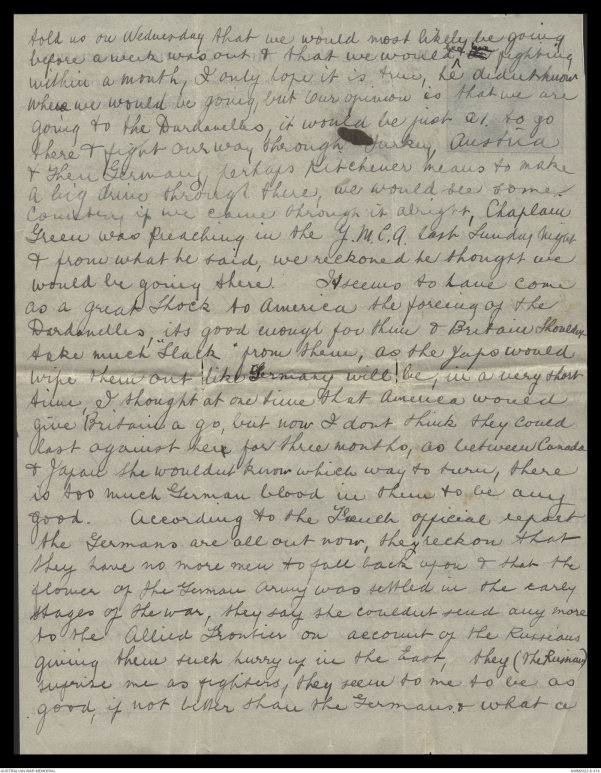 told us on Wednesday that we would most likely be going
before a week was out & that we would be fighting
within a month, I only hope it is true, he didnt know
where we would be going, but our opinion is that we are
going to the Dardanelles, it would be just A1. to go
there & fight our way through Turkey, Austria
& then Germany, perhaps Kitchener means to make
a big drive through there, we would see some
country if we came through it alright, Chaplain
Green was Preaching in the Y.M.C.A. last Sunday night
& from what he said, we reckoned he thought we
would be going there. It seems to have come
as a great Shock to America the forcing of the
Dardanelles, its good enough for them & Britain Shouldnt
take much "Slack" from them, as the Japs would
wipe them out like Germany will be, in a very short
time, I thought at one time that America would
give Britain a go, but now I dont think they could
last against her for three months, as between Canada
& Japan she wouldnt know which way to turn, there
is too much German blood in them to be any
good. According to the French official report
the Germans are all out now, they reckon that
they have no more men to fall back upon & that the
flower of the German Army was settled in the early
stages of the war, they say she couldnt send any more
to the Allied Frontier on account of the Russians
giving them such hurry up in the East, they (the Russians)
suprise me as fighters, they seem to me to be as
good, if not better than the Germans & what a
AUSTRALIAN WAR MEMORIAL